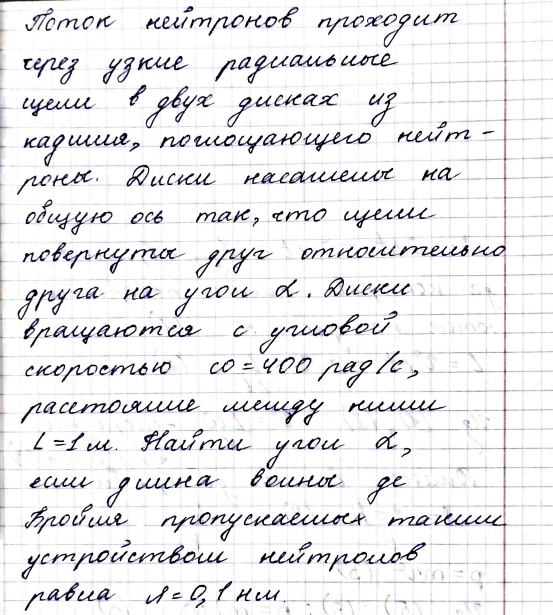 Поток нейтронов проходит
через узкие радиальные
щели в двух дисках из
кадмия, поглощающего нейт-
роны. Диски насажены на
общую ось так, что щели
повернуты друг относительно
друга на угол α. Диски
вращаются с угловой
скоростью ω=400 рад/с,
расстояние между ними
L=1м. Найти угол α,
если длина волны де
Бройля пропускаемых таким
устройством нейтронов
равна λ=0,1 нм.